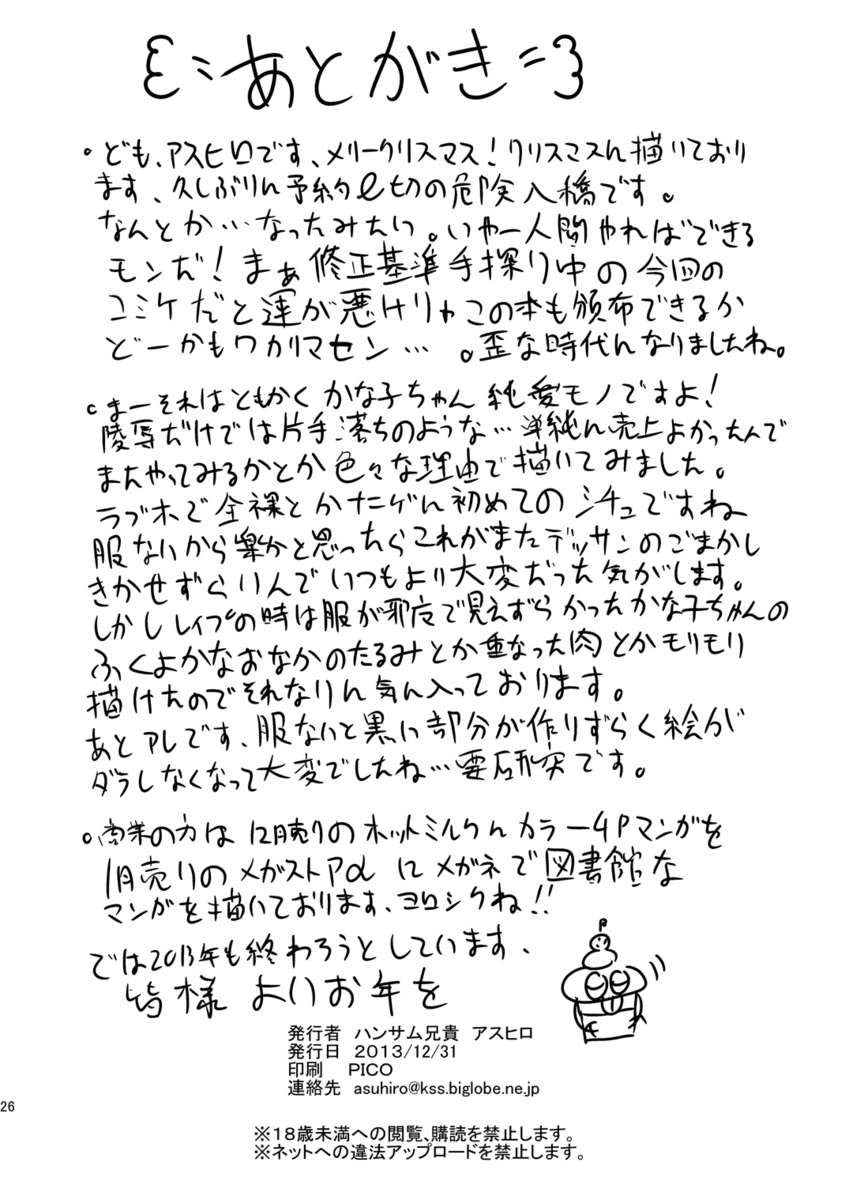 あとがき
。ども、アスヒロです、メリークリスマス！クリスマスに描いており
ます、久しぶりに予約〆切の危険入橋です。
なんとか…なったみたい。いやー人間やればできる
モンだ！まぁ修正基準手探り中の今回の
コミケだと運が悪けりゃこの本も頒布できるか
どーかもワカリマセン… 。歪な時代になりましたね。
。まーそれはともかくかな子ちゃん純愛モノですよ！
陵辱だけでは片手落ちのような…単純に売上よかったんで
またやってみるかとか色々な理由で描いてみました。
ラブホで全裸とか初めてのシチュですね
服ないから楽かと思ったらこれがまたデッサンのごまかし
きかせずらいんでいつもより大変だった気がします。
しかしレイプの時は服が邪魔で見えずらかったかな子ちゃんの
ふくよかなおなかのたるみとか重なった肉とかモリモリ
描けたのでそれなりに気に入っております。
あとアレです、服ないと黒い部分が作りずらく絵が
ダラしなくなって大変でしたね…要研究です。
。商業の方は12月売りのホットミルクにカラー4Pマンガを
1月売りのメガストアαにメガネで図書館な
マンガを描いております、ヨロシクね!!
では2013年も終わろうとしています、
皆様よいお年を
発行者 ハンサム兄貴 アスヒロ
発行日 2013/12/31
印刷 PICO
連絡先 asuhiro@kss.biglobe.ne.jp
26
※18歳未満への閲覧、購読を禁止します。
※ネットへの違法アップロードを禁止します。